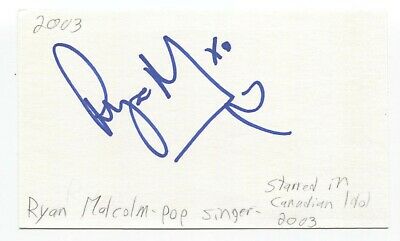 2003
Ryan M xo
Starred in
Canadian Idol
Ryan Malcolm - pop singer -
2003